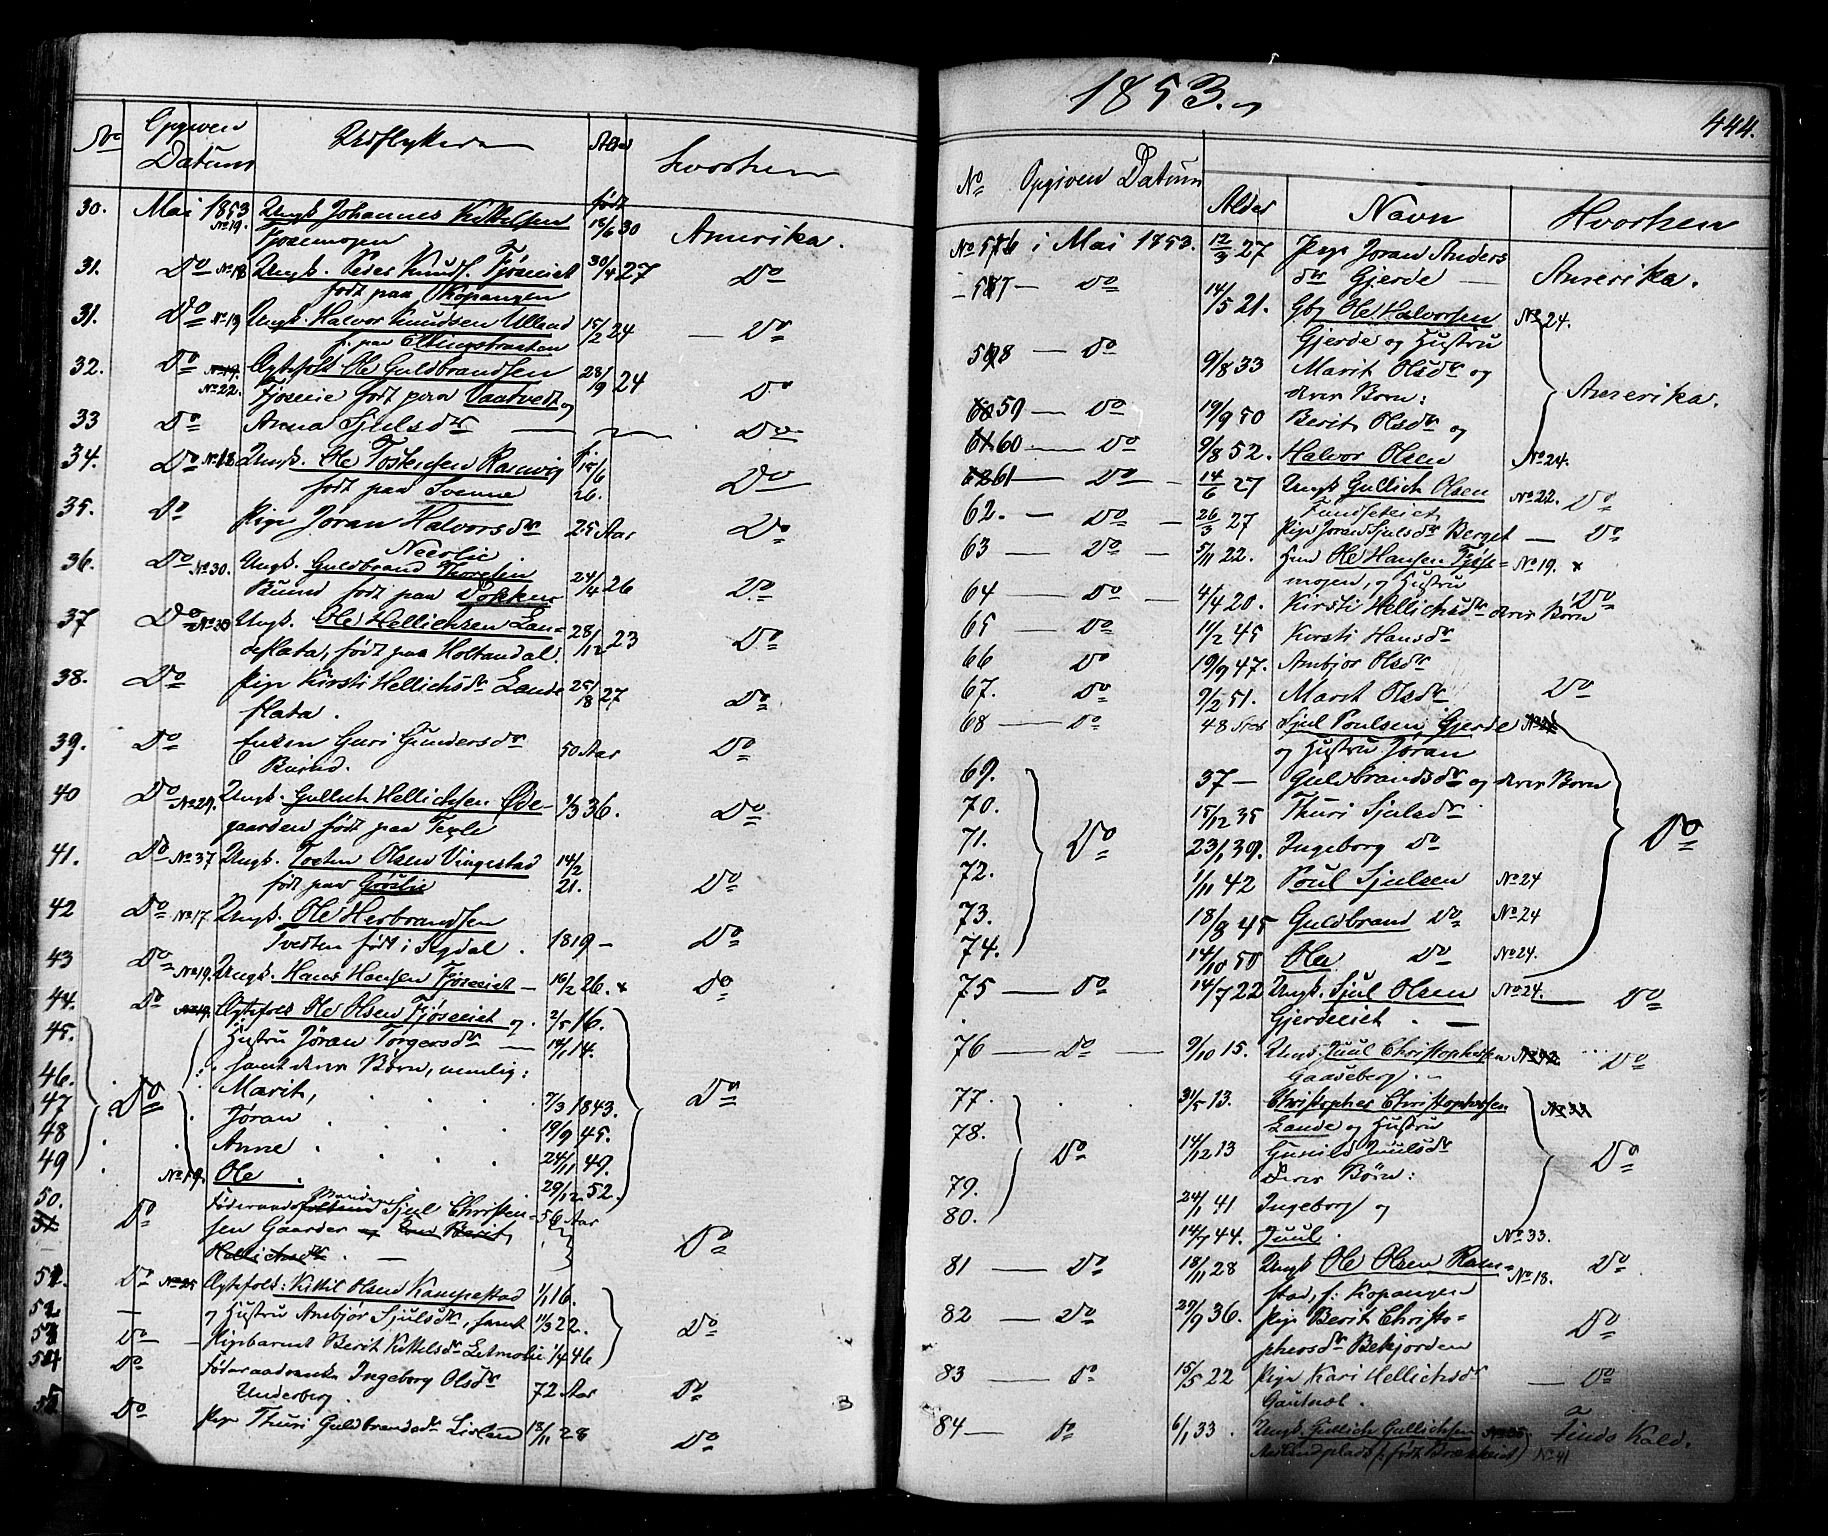 1853.
444.
No Opgiven Datum Udflyttere Alder Hvorhen
30. Mai 1853 No 19. Ungk. Johannes Kittelsen født 18/6 30 Amerika.
31. Do No 18 Ungk. Peder Knuds. Tjøseiet 30/4 27 Do
født paa Kopangen
31. Do No 13 Ungk. Halvor Knudsen Ulland 15/2 24 Do
32. Do No 19. Ægtefolk Ole Guldbrandsen 28/9 24 Do
No 22. født paa Vaatvedt og
33 Do Anna Sjulsdr Do
34. Do No 18 Ungk. Ole Tostensen f. 15/6 26. Do
født paa Svenne
35. Do Pige Jøran Halvorsdr 25 Aar Do
36. Do No 30. Ungk. Guldbrand Thoresen 24/4 26 Do
født paa Dokken
37 Do No 30 Ungk. Ole Hellichsen Lan- 28/12 23 Do
deflata, født paa Holtandal.
38. Do Pige Kirsti Hellichsdr Lande 27 Do
flata.
39. Do Enken Guri Gundersdr 50 Aar Do
40 Do No 29. Ungk. Gullich Hellichsen Øde- 9/3 36. Do
gaarden født paa
41. Do No 37 Ungk. Tosten Olsen Vingestad 14/2 21. Do
født paa Grøslie
42 Do No 17. Ungk. Ole Herbrandsen
Tvedten født i Sigdal. 1819 – Do
43 Do No 19. Ungk. Hans Hansen Tjøseiet – 16/2 26. x Do
44. Do No 19. Ægtefolk Ole Olsen Tjøseiet og 2/5 16.
45. Hustru Jøran Torgersdr 14/11 14.
samt deres Børn, nemlig:
46. Marit, 7/3 1843.
47 Do Jøran 19/9 45. Do
48 Anne 24/11 49.
49 No 19. Ole 29/12 52.
50. Do Føderaads manden Sjul Christen- 56 Aar
51 sen Gaarder og Berit Do
Hellichsdr.
51. Do No 25 Ægtefolk: Kittil Olsen Kampestad 1/1 16.
52. – og Hustru Anbjør Sjulsdr, samt 11/3 22. Do
53 Do Pigebarnet Berit Kittelsdr 46
54 Do Ingeborg Olsdr 72 Aar Do
Underberg.
55. Do Pige Thuri Guldbrandsdr Lisland 13/11 28 Do
No Opgiven Datum Alder Navn Hvorhen
No 56 i Mai 1853. 12/3 27 Pige Jøran Anders
dr Gjerde – Amerika.
57 – Do 14/5 21. Gb. Ole Halvorsen No 24.
Gjerde og Hustru
58 – Do 9/8 33 Marit Olsdr og Amerika.
deres Børn:
59 – Do 19/9 50 Berit Olsdr og
60 – Do 9/8 52. Halvor Olsen No 24.
61 – Do – 14/6 27 Ungk Gullich Olsen No 22. Do
62. – Do – 26/3 27 Pige Jøran Sjulsdr Berget – Do
63 – Do – 5/11 22. Ole Hansen Tjøs- No 19. x
mogen, og Hustru
64 – Do – 4/4 20. Kirsti Hellichsdr deres Børn Do
65 Do 11/2 45 Kirsti Hansdr
66 Do 19/9 47. Anbjør Olsdr
67. Do 9/2 51. Marit Olsdr Do
68 – Do 48 Aar Sjul Poulsen Gjerde No 24
og Hustru Jøran
69. 37 – Guldbrandsdr og deres Børn
70. 15/12 35 Thuri Sjulsdr
71. Do 23/1 39. Ingeborg Do Do
72. 1/11 42 Poul Sjulsen No 24
73. 18/8 45 Guldbrand Do No 24
74. 14/10 50 Ole Do No 24.
75 – Do 14/7 22 Ungk. Sjul Olsen No 24. – Do
Gjerdeeiet.
76 – Do – 9/10 15. Ungk. Juul Christophersen Do
Gaaseberg.
77. 31/5 13. Christopher Christophersen No 33
Lande og Hustru
78. Do 14/12 13 Gunild Juulsdr Do
Deres Børn:
79. 24/1 41 Ingeborg og
80. 14/7 44. Juul. No 33.
81 – Do 18/11 28 Ungk Ole Olsen Ram- No 18. Do
stad, f: Kopangen
82 – Do 29/9 36. Pige Berit Christo- Do
phersdr Bekjorden
83 – Do 15/5 22 Pige Kari Hellichsdr – Do
84 – Do 6/1 33. Ungk. Gullich Gullichsen No 25.
No 41